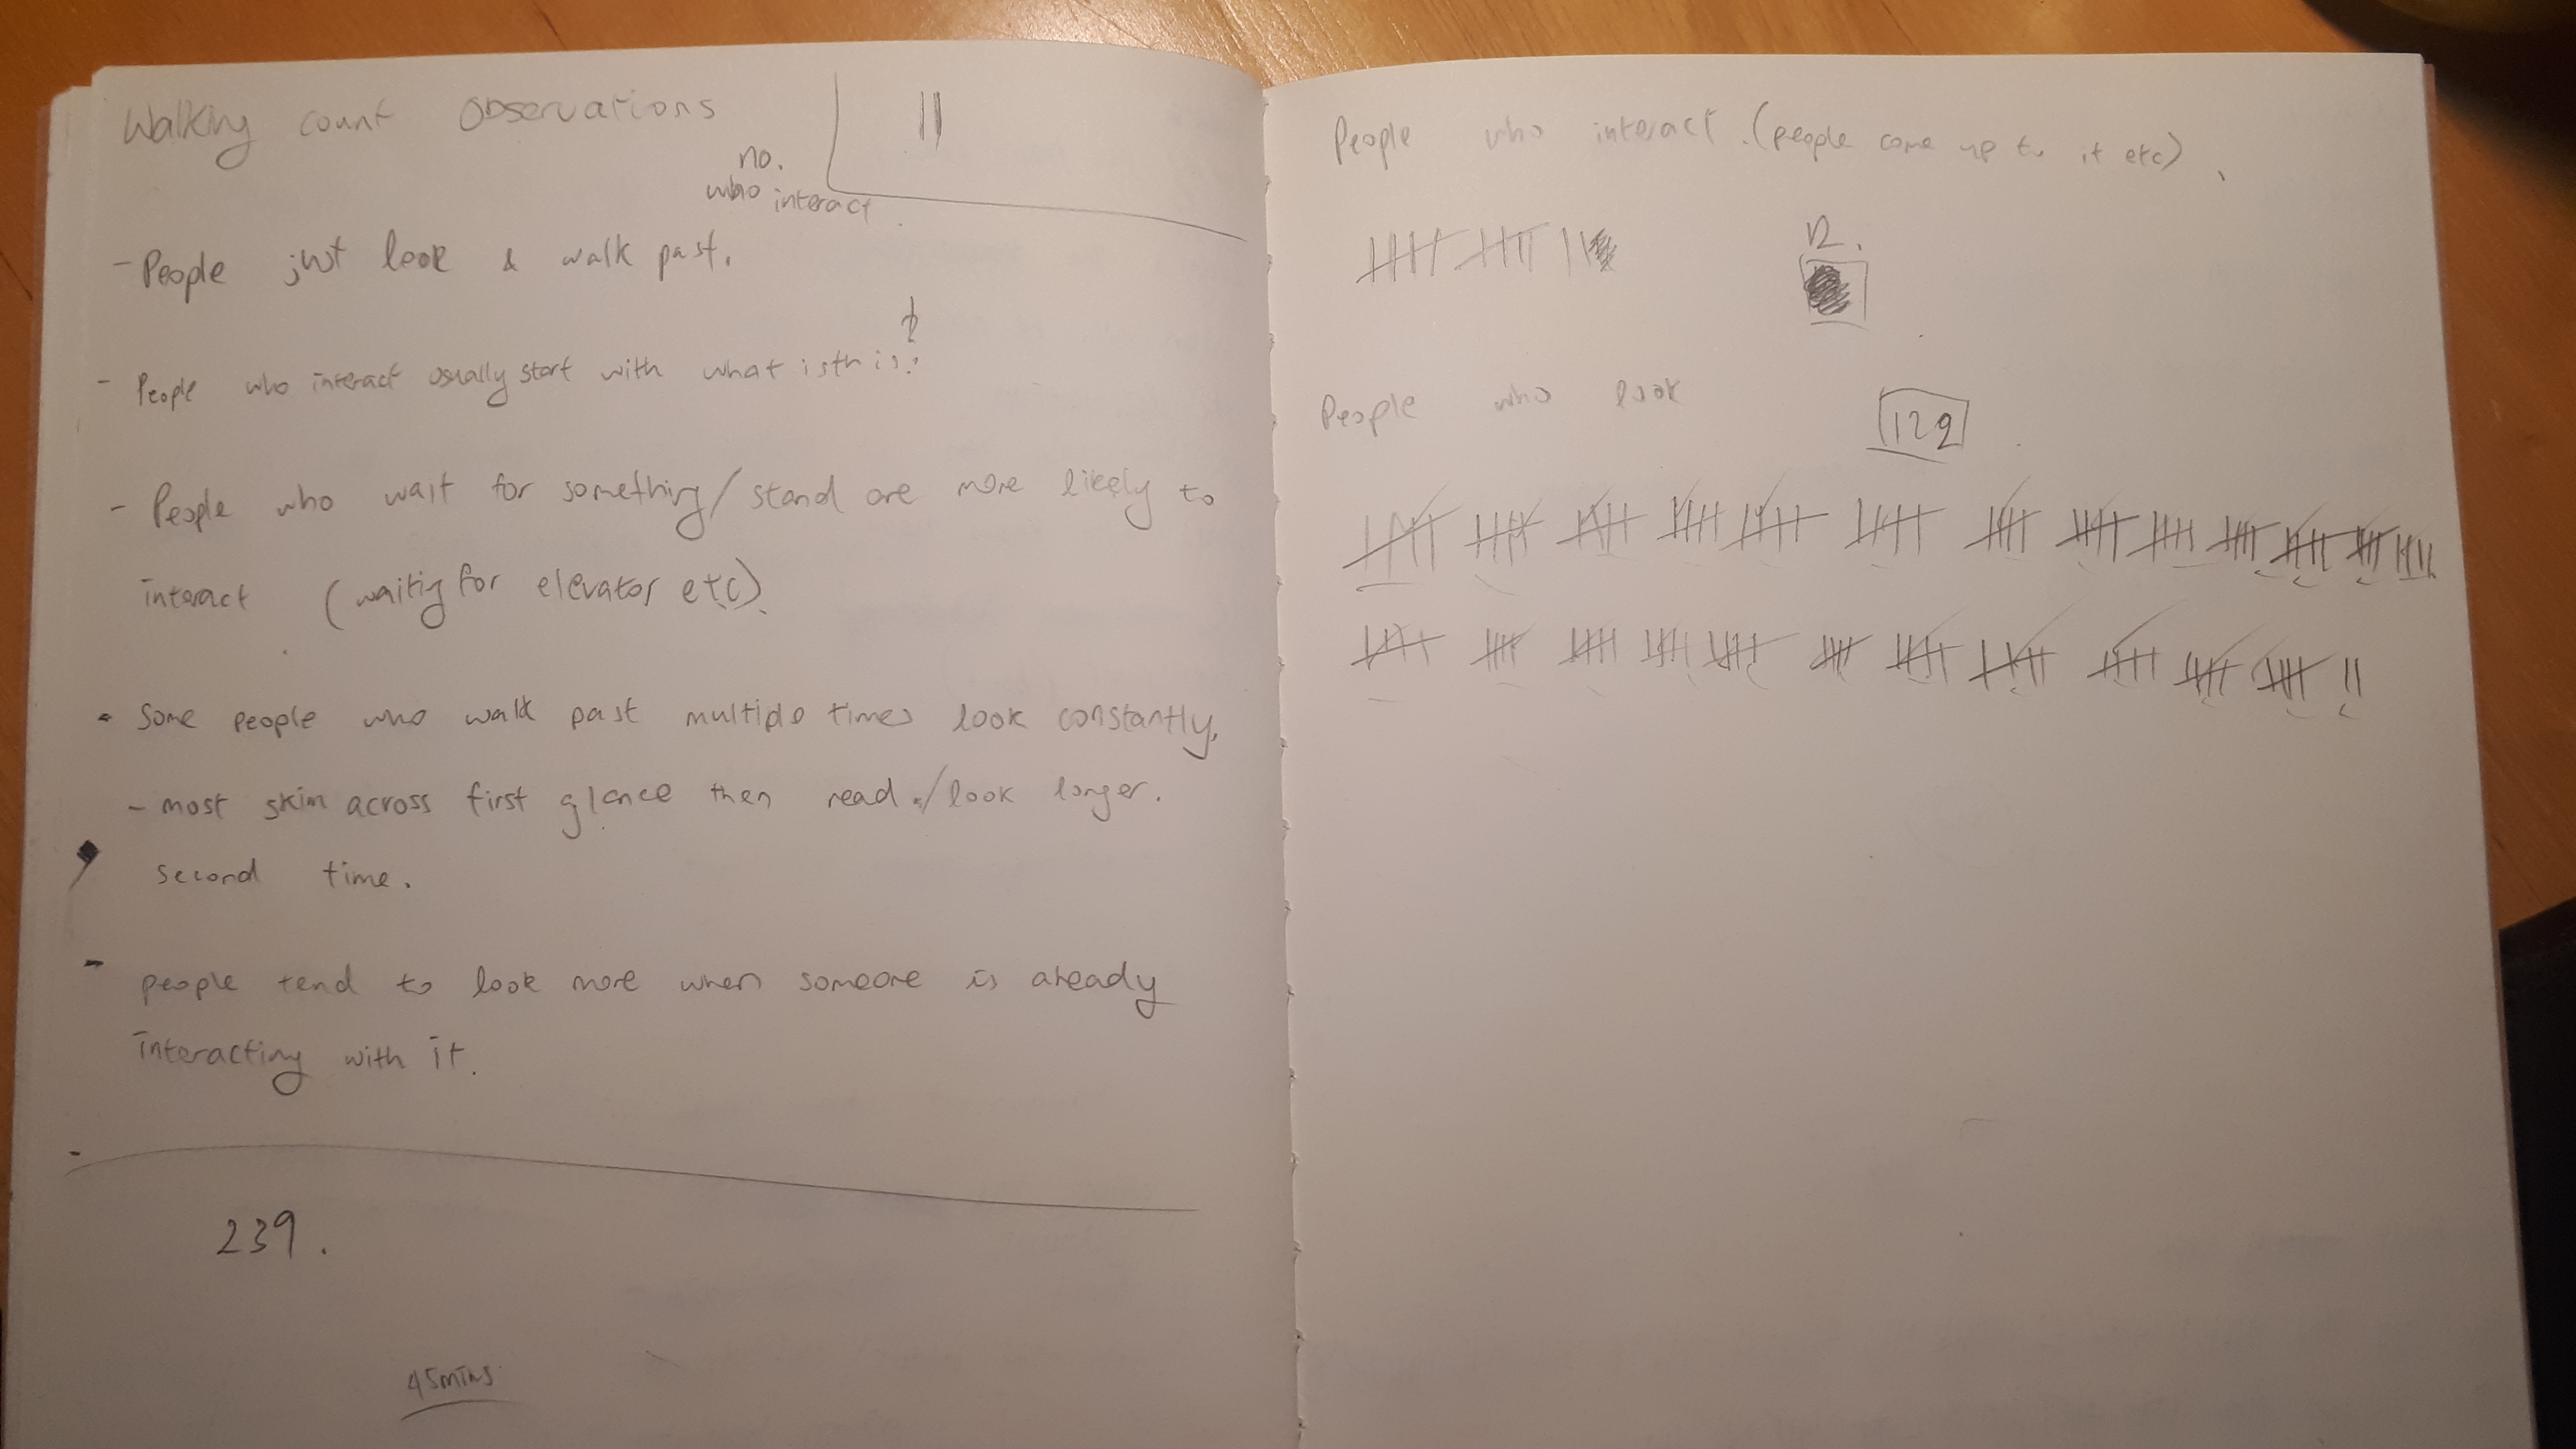 Walking count observations
no.
who interact
- People just look & walk past.
- People who interact usually start with what is this?
- People who wait for something/stand are more likely to
interact (waitig for elevator etc).
- Some people who walk past multiple times look constantly.
- most skim across first glance then read/look longer.
second time.
- people tend to look more when someone is already
interacting with it.
239.
45mins
People who interact. (people come up to it etc).
12.
People who look
129